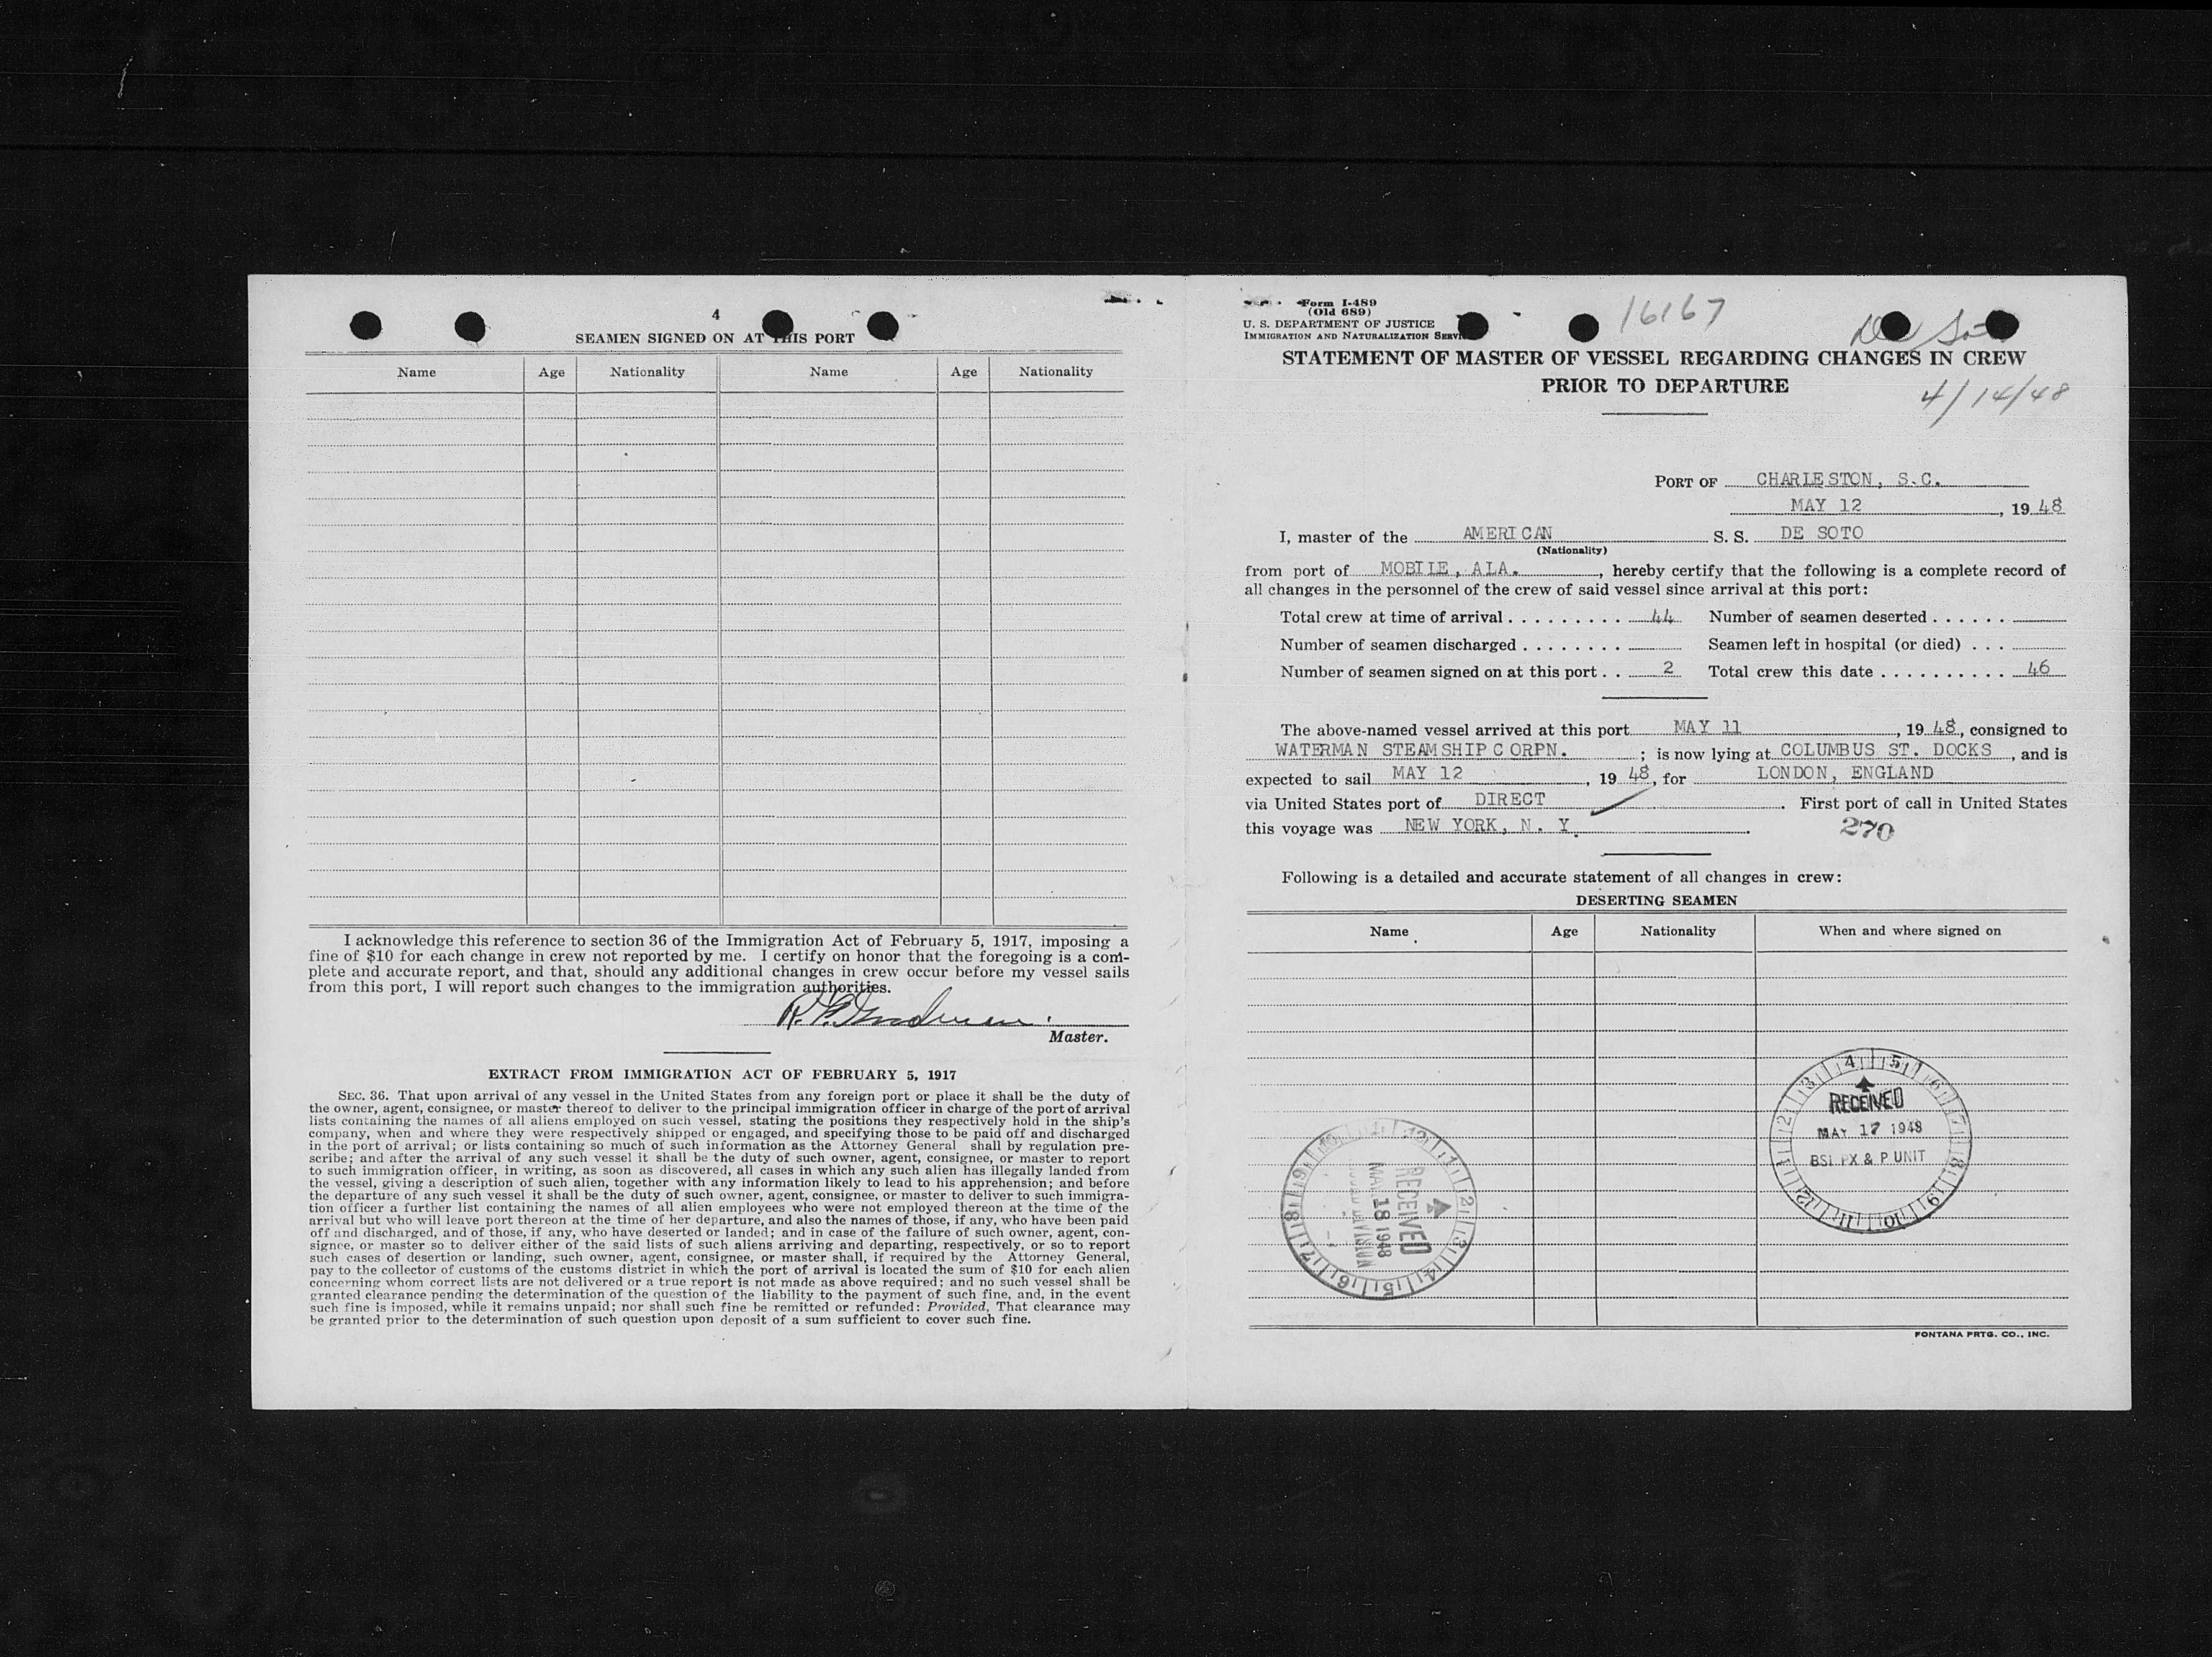 4
SEAMEN SIGNED ON AT THIS PORT
Name Age Nationality Name Age Nationality
I acknowledge this reference to section 36 of the Immigration Act of February 5, 1917, imposing a
fine of $10 for each change in crew not reported by me. I certify on honor that the foregoing is a com-
plete and accurate report, and that, should any additional changes in crew occur before my vessel sails
from this port, I will report such changes to the immigration authorities.
Master.
EXTRACT FROM IMMIGRATION ACT OF FEBRUARY 5, 1917
SEC. 36. That upon arrival of any vessel in the United States from any foreign port or place it shall be the duty of
the owner, agent, consignee, or master thereof to deliver to the principal immigration officer in charge of the port of arrival
lists containing the names of all aliens employed on such vessel, stating the positions they respectively hold in the ship's
company, when and where they were respectively shipped or engaged, and specifying those to be paid off and discharged
in the port of arrival; or lists containing so much of such information as the Attorney General shall by regulation pre-
scribe; and after the arrival of any such vessel it shall be the duty of such owner, agent, consignee, or master to report
to such immigration officer, in writing, as soon as discovered, all cases in which any such alien has illegally landed from
the vessel, giving a description of such alien, together with any information likely to lead to his apprehension; and before
the departure of any such vessel it shall be the duty of such owner, agent, consignee, or master to deliver to such immigra-
tion officer a further list containing the names of all alien employees who were not employed thereon at the time of the
arrival but who will leave port thereon at the time of her departure, and also the names of those, if any, who have been paid
off and discharged, and of those, if any, who have deserted or landed; and in case of the failure of such owner, agent, con-
signee, or master so to deliver either of the said lists of such aliens arriving and departing, respectively, or so to report
such cases of desertion or landing, such owner, agent, consignee, or master shall, if required by the Attorney General,
pay to the collector of customs of the customs district in which the port of arrival is located the sum of $10 for each alien
concerning whom correct lists are not delivered or a true report is not made as above required; and no such vessel shall be
granted clearance pending the determination of the question of the liability to the payment of such fine, and, in the event
such fine is imposed, while it remains unpaid; nor shall such fine be remitted or refunded: Provided, That clearance may
be granted prior to the determination of such question upon deposit of a sum sufficient to cover such fine.
Form I-489
(Old 689)
U. S. DEPARTMENT OF JUSTICE
IMMIGRATION AND NATURALIZATION SERVI
16167
De Soto
STATEMENT OF MASTER OF VESSEL REGARDING CHANGES IN CREW
PRIOR TO DEPARTURE
4/14/48
PORT OF CHARLESTON, S.C.
MAY 12, 1948
I, master of the AMERICAN S. S. DE SOTO
(Nationality)
from port of MOBILE, ALA., hereby certify that the following is a complete record of
all changes in the personnel of the crew of said vessel since arrival at this port:
Total crew at time of arrival . . . . . . . . . 44 Number of seamen deserted . . . . . .
Number of seamen discharged . . . . . . . . Seamen left in hospital (or died) . . .
Number of seamen signed on at this port . . 2 Total crew this date . . . . . . . . . . 46
The above-named vessel arrived at this port MAY 11, 1948, consigned to
WATERMAN STEAMSHIP CORPN. ; is now lying at COLUMBUS ST. DOCKS, and is
expected to sail MAY 12, 1948, for LONDON, ENGLAND
via United States port of DIRECT. First port of call in United States
this voyage was NEW YORK, N. Y.
270
Following is a detailed and accurate statement of all changes in crew:
DESERTING SEAMEN
Name Age Nationality When and where signed on
4 5 6 7 8 9 10 11 12 1 2 3
RECEIVED
MAY 17 1948
BSI PX & P UNIT
12 1 2 3 4 5 6 7 8 9 10 11
RECEIVED
MAY 18 1948
DIVISION
FONTANA PRTG. CO., INC.